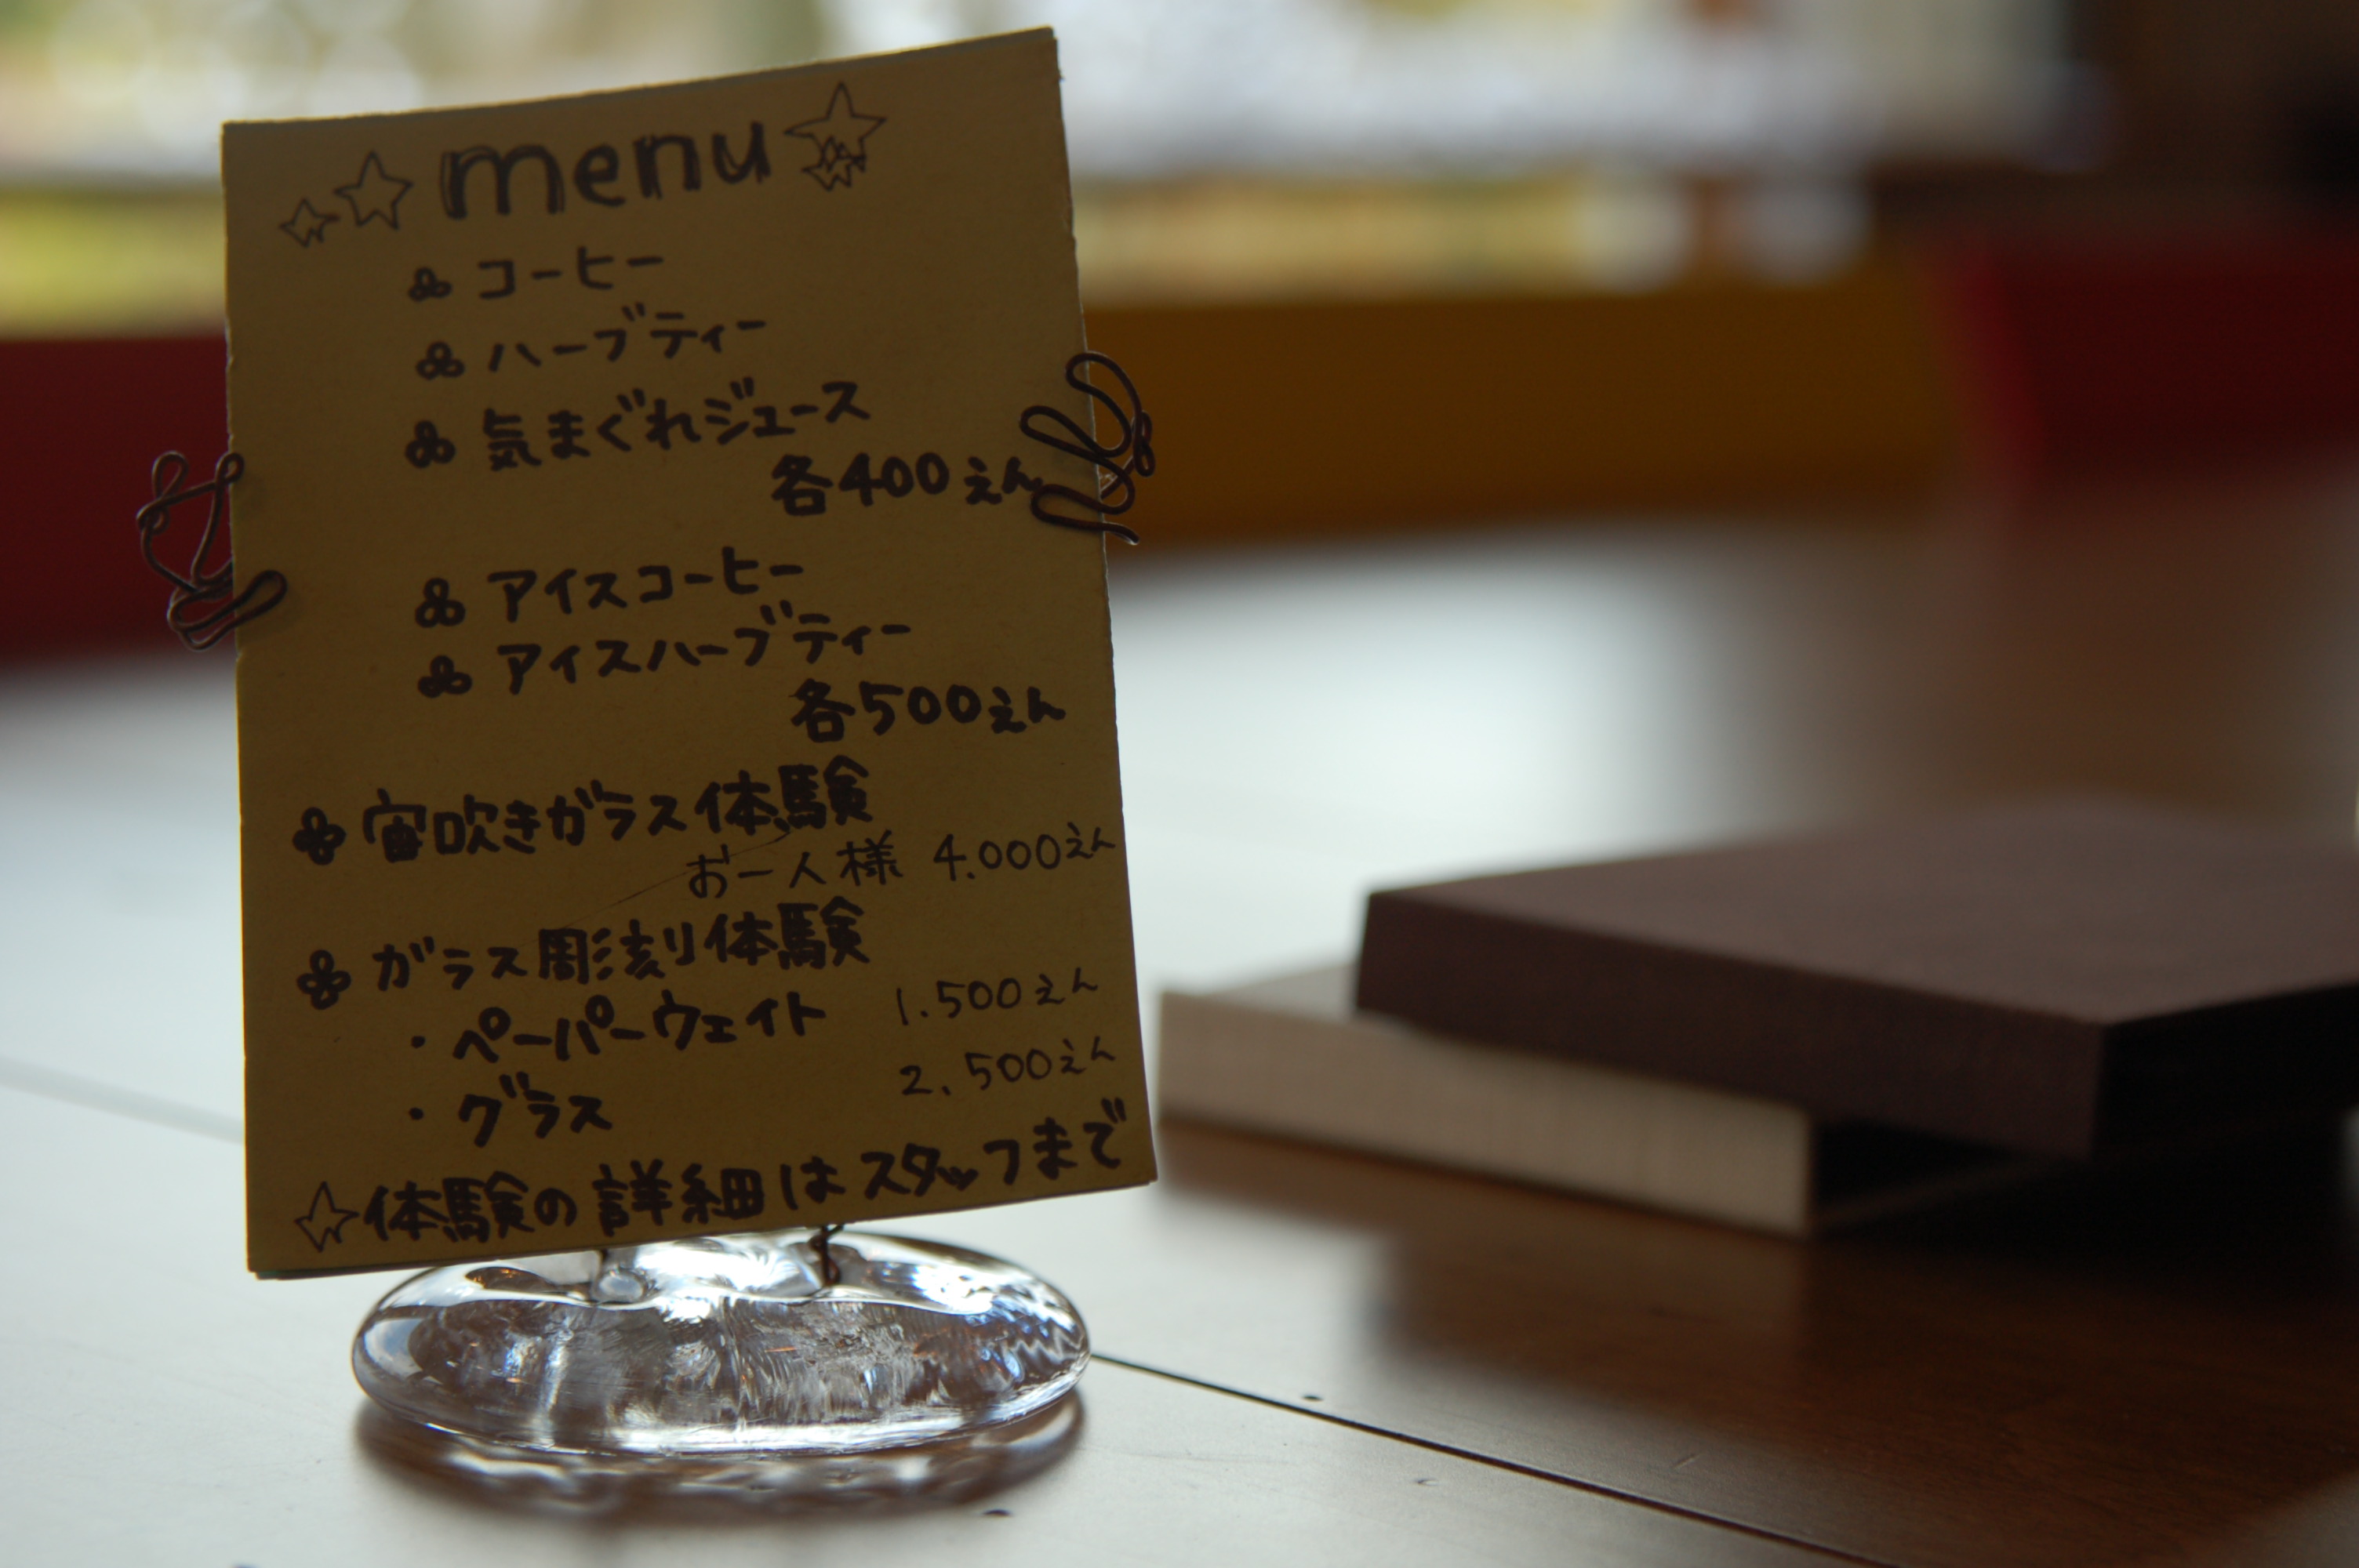 menu
コーヒー
ハーブティー
気まぐれジュース
各400えん
アイスコーヒー
アイスハーブティー
各500えん
宙吹きガラス体験
お一人様 4.000えん
ガラス彫刻体験
・ペーパーウェイト 1.500えん
・グラス 2.500えん
☆体験の詳細はスタッフまで